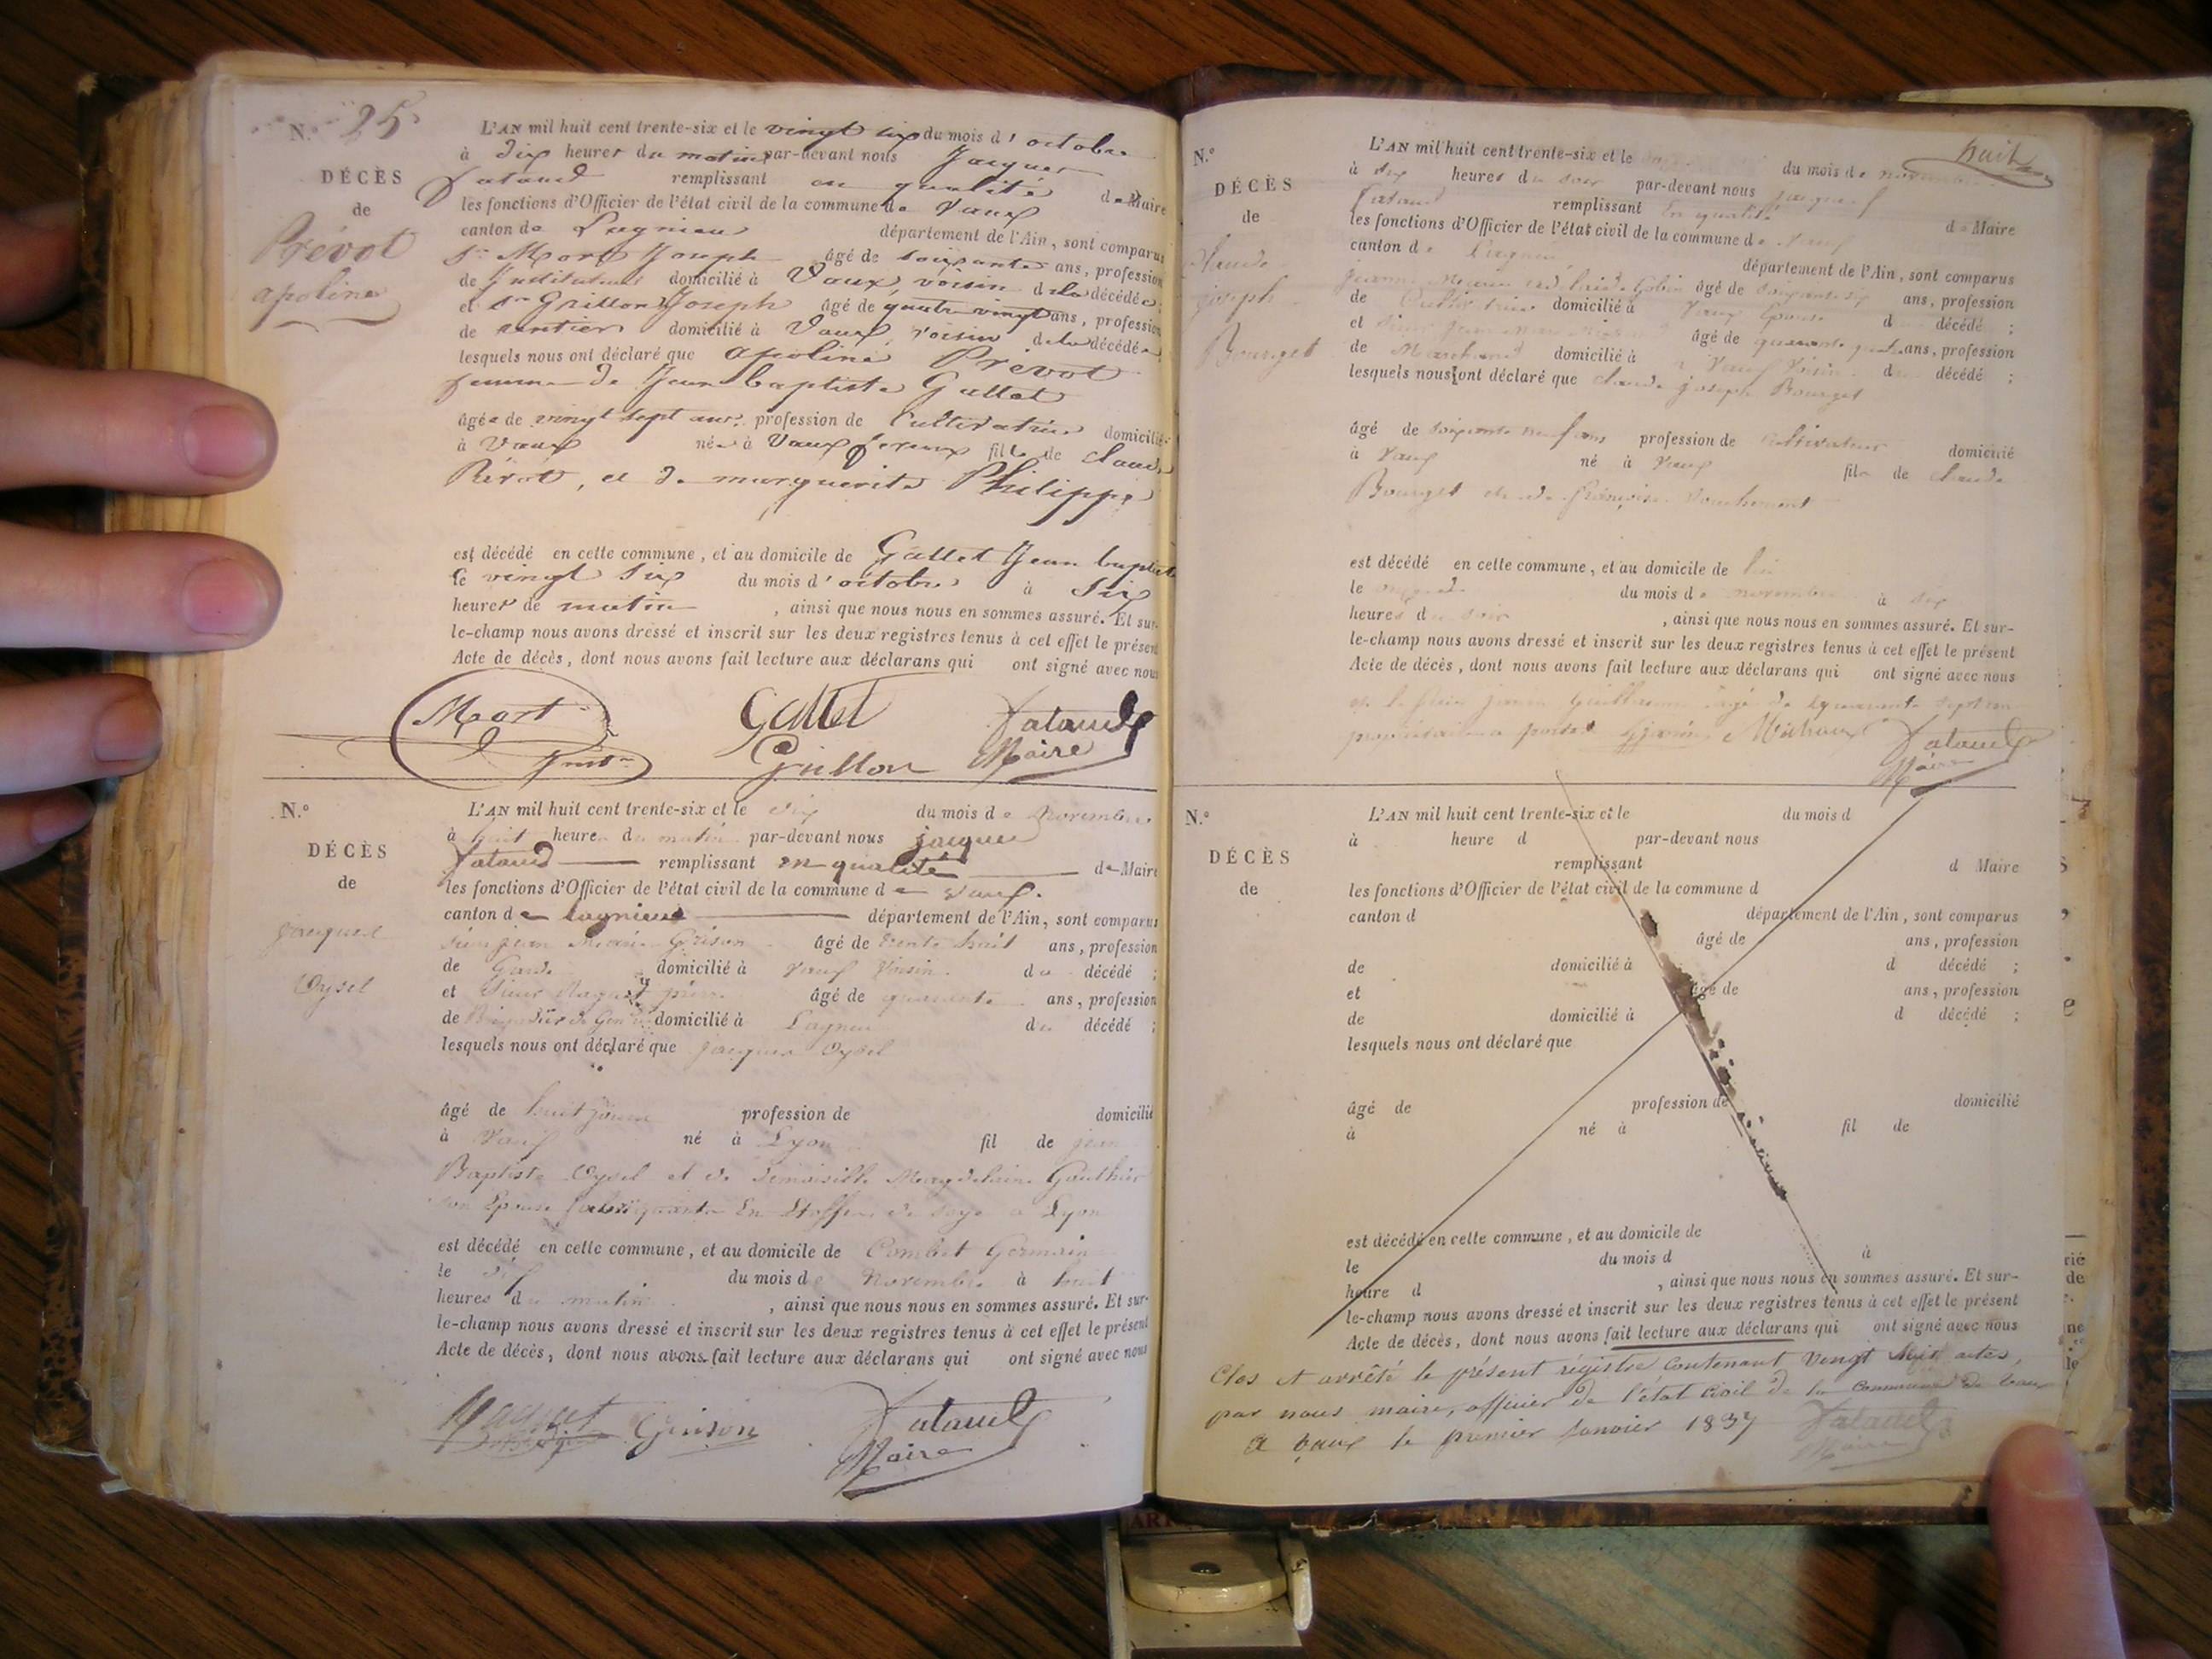 N.o 25
DÉCÈS
de
Prévot
apoline
L'AN mil huit cent trente-six et le vingt six du mois d' octobre
à dix heures du matin par-devant nous Jacques
Fataud remplissant en qualité de Maire
les fonctions d'Officier de l'état civil de la commune de Vaux
canton de Lagnieu département de l'Ain, sont comparus
Sr Mort Joseph âgé de soixante ans, profession
de Instituteur domicilié à Vaux, voisin de la décédée;
et Sr Grillon Joseph âgé de quatre vingt ans, profession
de rentier domicilié à Vaux, voisin de la décédée,
lesquels nous ont déclaré que apoline Prévot
femme de Jean baptiste Gallet
âgée de vingt sept ans, profession de Cultivatrice domicilié
à Vaux née à Vaux fille de claude
Prévot, et de marguerite Philippe
est décédé en cette commune, et au domicile de Gallet Jean baptiste
le vingt six du mois d' octobre à Six
heures de matin , ainsi que nous nous en sommes assuré. Et sur-
le-champ nous avons dressé et inscrit sur les deux registres tenus à cet effet le présent
Acte de décès, dont nous avons fait lecture aux déclarans qui ont signé avec nous
Mort Gallet Fataud
Grillon Maire
N.o
DÉCÈS
de
jacques
Oysel
L'AN mil huit cent trente-six et le dix du mois de Novembre
à huit heures du matin par-devant nous jacques
Fataud remplissant en qualité de Maire
les fonctions d'Officier de l'état civil de la commune de Vaux.
canton de lagnieu département de l'Ain, sont comparus
Sieur jean Marie Grison âgé de trente huit ans, profession
de Garde domicilié à Vaux Voisin du décédé ;
et Sieur âgé de quarante ans, profession
de Brigadier de domicilié à Lagnieu du décédé ;
lesquels nous ont déclaré que jacques Oysel
âgé de huit jours profession de domicilié
à Vaux né à Lyon fil de jean
Baptiste Oysel et de demoiselle Magdelaine Gauthier
son Epouse fabriquants En Etoffes de Soye a Lyon
est décédé en cette commune, et au domicile de Combet Germain
le dix du mois de Novembre à huit
heures du matin , ainsi que nous nous en sommes assuré. Et sur-
le-champ nous avons dressé et inscrit sur les deux registres tenus à cet effet le présent
Acte de décès, dont nous avons fait lecture aux déclarans qui ont signé avec nous
Grison Fataud
Maire
huit
N.o
DÉCÈS
de
Claude
joseph
Bourget
L'AN mil huit cent trente-six et le du mois de novembre
à dix heures du soir par-devant nous jacques
Fataud remplissant En qualité de Maire
les fonctions d'Officier de l'état civil de la commune de Vaux
canton de Lagnieu département de l'Ain, sont comparus
âgé de soixante six ans, profession
de Cultivatrice domicilié à Vaux Epouse d décédé ;
et âgé de quarante quatre ans, profession
de Marchand domicilié à Vaux Voisin d décédé ;
lesquels nous ont déclaré que claude joseph Bourget
âgé de soixante neuf ans profession de cultivateur domicilié
à Vaux né à Vaux fils de claude
Bourget et de françoise
est décédé en cette commune, et au domicile de lui
le onze du mois de novembre à dix
heures du soir , ainsi que nous nous en sommes assuré. Et sur-
le-champ nous avons dressé et inscrit sur les deux registres tenus à cet effet le présent
Acte de décès, dont nous avons fait lecture aux déclarans qui ont signé avec nous
âgé de quarante sept ans
Michaux Fataud
Maire
N.o
DÉCÈS
de
L'AN mil huit cent trente-six et le du mois d
à heure d par-devant nous
remplissant d Maire
les fonctions d'Officier de l'état civil de la commune d
canton d département de l'Ain, sont comparus
âgé de ans, profession
de domicilié à d décédé ;
et âgé de ans, profession
de domicilié à d décédé ;
lesquels nous ont déclaré que
âgé de profession de domicilié
à né à fil de
est décédé en cette commune, et au domicile de
le du mois d à
heure d , ainsi que nous nous en sommes assuré. Et sur-
le-champ nous avons dressé et inscrit sur les deux registres tenus à cet effet le présent
Acte de décès, dont nous avons fait lecture aux déclarans qui ont signé avec nous
Clos et arrêté le présent régistre contenant vingt huit actes,
par nous maire, officier de l'état civil de la commune de vaux
A vaux le premier Janvier 1837 Fataud
Maire